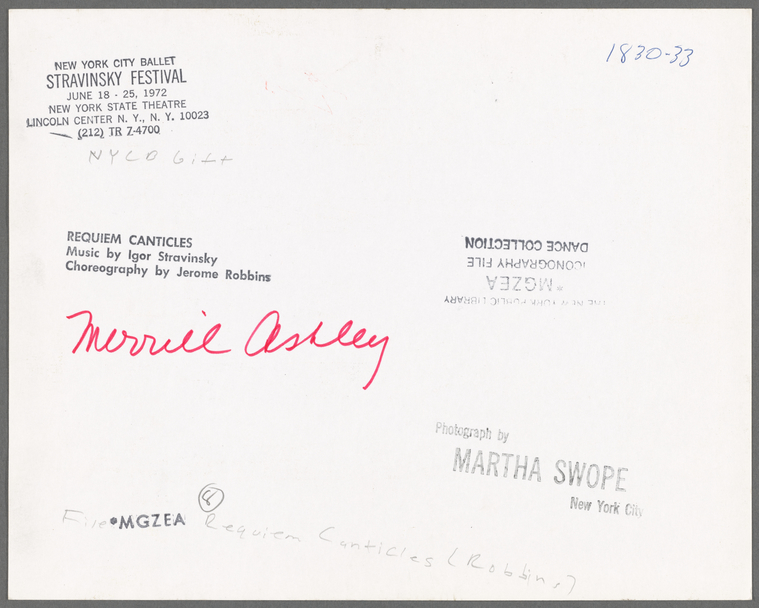 1830-33
NEW YORK CITY BALLET
STRAVINSKY FESTIVAL
JUNE 18 - 25, 1972
NEW YORK STATE THEATRE
LINCOLN CENTER N. Y., N. Y. 10023
(212) TR 7-4700
NYCB Gift
REQUIEM CANTICLES
Music by Igor Stravinsky
Choreography by Jerome Robbins
THE NEW YORK PUBLIC LIBRARY
*MGZEA
ICONOGRAPHY FILE
DANCE COLLECTION
Merrill Ashley
Photograph by
MARTHA SWOPE
New York City
8
File *MGZEA Requiem Canticles (Robbins)